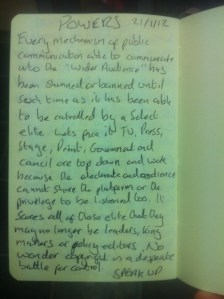 POWERS 21/1/12
Every mechanism of public
communication able to communicate
who the "Wider Audience" has
been shunned or banned until
such time as it has been able
to be controlled by a select
elite. Lets face it TV, Press,
Stage, Print, Government and
Council are top down and work
because the electorate and audience
cannot share the platform or the
privilege to be listened too. It
scares all of those elite that they
may no longer be leaders, king
makers or policy editors. No
wonder copyright is a desperate
battle for control.
SPEAK UP